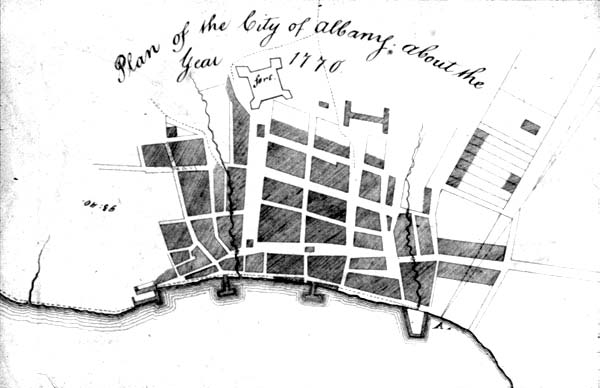 Plan of the City of Albany: about the
Year 1770
fort
A.